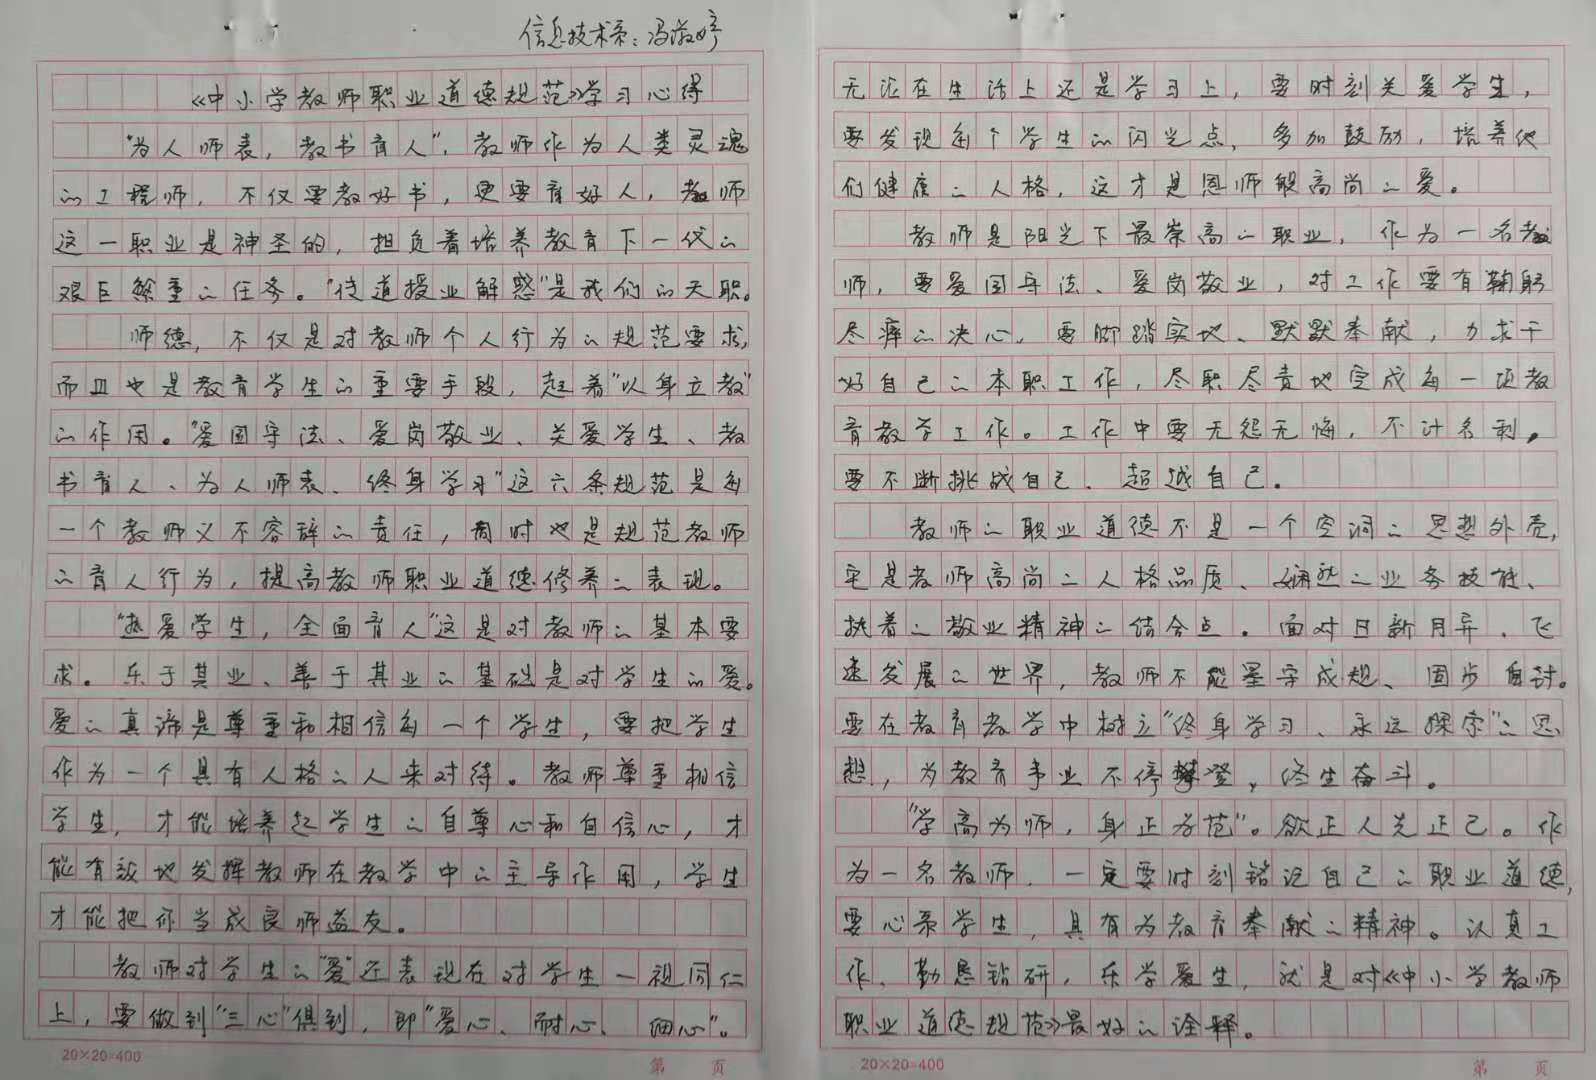 信息技术系：冯淑婷
《中小学教师职业道德规范》学习心得
“为人师表，教书育人”，教师作为人类灵魂
的工程师，不仅要教好书，更要育好人，教师
这一职业是神圣的，担负着培养教育下一代的
艰巨繁重的任务。“传道授业解惑”是我们的天职。
师德，不仅是对教师个人行为的规范要求，
而且也是教育学生的重要手段，起着“以身立教”
的作用。“爱国守法、爱岗敬业、关爱学生、教
书育人、为人师表、终身学习”这六条规范是每
一个教师义不容辞的责任，同时也是规范教师
的育人行为，提高教师职业道德修养的表现。
“热爱学生，全面育人”这是对教师的基本要
求。乐于其业、善于其业的基础是对学生的爱。
爱的真谛是尊重和相信每一个学生，要把学生
作为一个具有人格的人来对待。教师尊重相信
学生，才能培养起学生的自尊心和自信心，才
能有效地发挥教师在教学中的主导作用，学生
才能把你当成良师益友。
教师对学生的“爱”还表现在对学生一视同仁
上，要做到“三心”俱到，即“爱心、耐心、细心”。
20×20=400
第 页
无论在生活上还是学习上，要时刻关爱学生，
要发现每个学生的闪光点，多加鼓励，培养他
们健康的人格，这才是恩师般高尚的爱。
教师是阳光下最崇高的职业，作为一名教
师，要爱国守法、爱岗敬业，对工作要有鞠躬
尽瘁的决心，要脚踏实地、默默奉献，力求干
好自己的本职工作，尽职尽责地完成每一项教
育教学工作。工作中要无怨无悔，不计名利，
要不断挑战自己、超越自己。
教师的职业道德不是一个空洞的思想外壳，
它是教师高尚的人格品质、娴熟的业务技能、
执着的敬业精神的结合点。面对日新月异、飞
速发展的世界，教师不能墨守成规、固步自封。
要在教育教学中树立“终身学习、永远探索”的思
想，为教育事业不停攀登，终生奋斗。
“学高为师，身正为范”。欲正人先正己。作
为一名教师，一定要时刻铭记自己的职业道德，
要心系学生，具有为教育奉献的精神。认真工
作，勤恳钻研，乐学爱生，就是对《中小学教师
职业道德规范》最好的诠释。
20×20=400
第 页